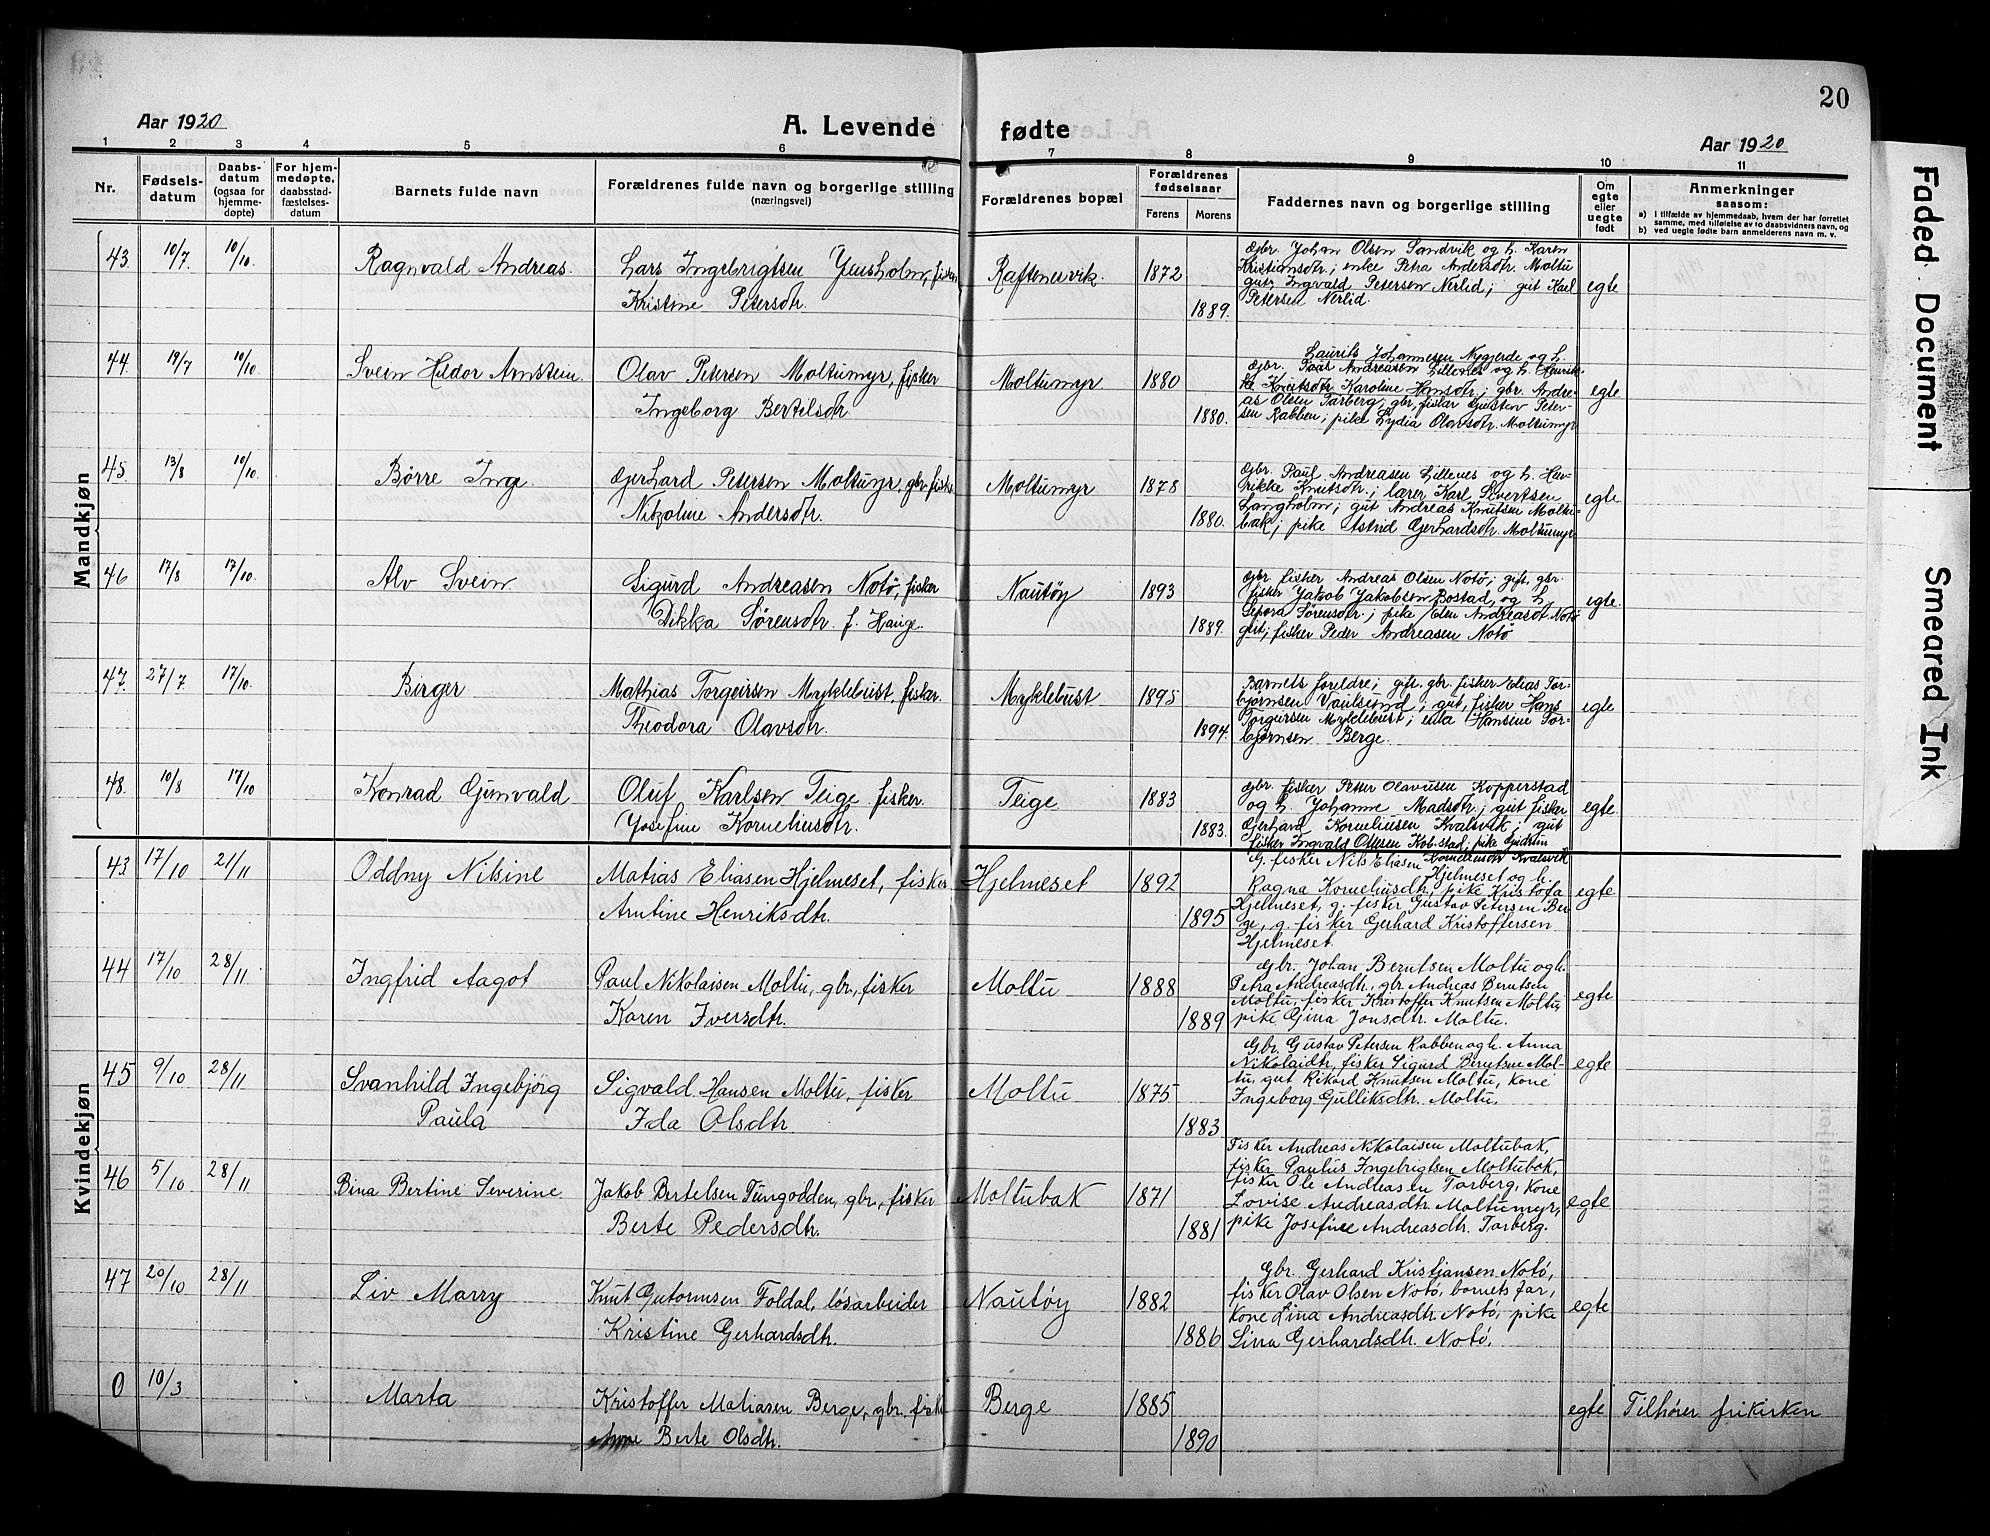 20
Aar 1920
A. Levende fødte
Aar 1920
1 2 3 4 5 6 7 8 9 10 11
Nr.
Fødsels-
datum
Daabs-
datum
(ogsaa for
hjemme-
døpte)
For hjem-
medøpte,
daabsstad-
fæstelses-
datum
Barnets fulde navn
Forældrenes fulde navn og borgerlige stilling
(næringsvei)
Forældrenes bopæl
Forældrenes
fødselsaar
Farens Morens
Faddernes navn og borgerlige stilling
Om
egte
eller
uegte
født
Anmerkninger
saasom:
a) i tilfælde av hjemmedaab, hvem der har forrettet
samme, med tilføielse av to daabsvidners navn, og
b) ved uegte fødte barn anmelderens navn m. v.
Mandkjøn
43. 10/7 10/10 Ragnvald Andreas.
Lars Ingebrigtsen Jensholm, fisker
Kristine Petersdtr.
Raftenesvik. 1872 1889.
Gbr. Johan Olsen Sandvik og h. Karen
Kristiansdtr.; enke Petra Andersdtr. Moltu
gut Ingvald Petersen Nerlid; gut Karl
Petersen Nerlid.
egte
44. 19/7 10/10. Svein Hildor Arnstein.
Olav Petersen Moltumyr, fisker
Ingeborg Bertilsdtr.
Moltumyr 1880 1880.
Laurits Johannesen Nygjerde og h.
Gbr. Paul Andreasen Lillenes og h. Henrik-
ke Knutsdtr. Karoline Hansdtr.; gbr. Andre-
as Olsen Tarberg; gbr. fisker Gusten Peter-
sen Rabben; pike Lydia Olavsdtr. Moltumyr
egte
45. 13/8 10/10 Børre Inge.
Gerhard Petersen Moltumyr, gbr. fisker
Nikoline Andersdtr.
Moltumyr 1878 1880.
Gbr. Paul Andreasen Lillenes og h. Hen-
rikke Knutsdtr.; lærer Karl Sivertsen
Langholm; gut Andreas Knutsen Moltu-
bak; pike Astrid Gerhardsdtr. Moltumyr
egte.
46 17/8 17/10. Alv Svein.
Sigurd Andreasen Notø, fisker
Dikka Sørensdtr. f. Hauge.
Nautøy 1893 1889.
Gbr. fisker Andreas Olsen Notø; gift. gbr.
fisker Jakob Jakobsen Bostad, og h.
Sepora Sørensdtr.; pike Elen Andreasdt. Notø
gut; fisker Peder Andreasen Notø
egte.
47. 27/7 17/10. Birger
Mathias Torgeirsen Myklebust, fisker.
Theodora Olavsdtr.
Myklebust 1895 1894.
Barnets foreldre; gift. gbr. fisker Elias Tor-
bjørnsen Vaulsund; gut, fisker Hans
Torgersen Myklebust; enke Hansine Tor-
bjørnsen Berge.
egte
48. 10/8 17/10 Konrad Gunvald
Oluf Karlsen Teige. fisker.
Josefine Korneliusdtr.
Teige 1883 1883.
Gbr. fisker Petter Olavusen Kopperstad
og h. Johanne Madsdtr.; gut fisker
Gerhard Korneliusen Kvalsvik; gut
fisker Ingvald Ottesen Kobstad; pike Gudrun
Korneliusdtr. Kvalsvik
egte.
Kvindekjøn
43 17/10 21/11 Oddny Nilsine
Matias Eliasen Hjelmeset, fisker
Antine Henriksdtr.
Hjelmeset 1892 1895
G. fisker Nils Eliasen Hjelmeset og h.
Ragna Korneliusdtr., pike Kristofa
Hjelmeset, g. fisker Gustav Petersen Ber
ge, g. fisker Gerhard Kristoffersen
Hjelmeset.
egte
44 17/10 28/11 Ingfrid Aagot
Paul Nikolaisen Moltu, gbr., fisker
Karen Iversdtr.
Moltu 1888 1889
Gbr. Johan Berntsen Moltu og h.
Petra Andreasdtr., gbr Andreas Berntsen
Moltu, fisker Kristoffer Knutsen Moltu,
pike Gina Jonsdtr. Moltu.
egte
45 9/10 28/11 Svanhild Ingebjørg
Paula
Sigvald Hansen Moltu, fisker
Ida Olsdtr.
Moltu 1875 1883
Gbr. Gustav Petersen Rabben og h. Anna
Nikolaidtr, fisker Sigurd Berntsen Mol-
tu, gut Rikard Knutsen Moltu, kone
Ingeborg Gulliksdtr. Moltu.
egte
46 5/10 28/11 Bina Bertine Severine
Jakob Bertelsen Tungodden, gbr., fisker
Berte Pedersdtr.
Moltubak 1871 1881
Fisker Andreas Nikolaisen Moltubak,
fisker Paulus Ingebrigtsen Moltubak,
fisker Ole Andreasen Tarberg, kone
Lovise Andreasdtr. Moltumyr,
pike Josefine Andreasdtr. Tarberg.
egte
47 20/10 28/11 Liv Marry
Knut Gutormsen Foldal, løsarbeider
Kristine Gerhardsdtr.
Nautøy 1882 1886
Gbr. Gerhard Kristjansen Notø,
fisker Olav Olsen Notø, barnets far,
kone Lina Andreasdtr. Notø, pike
Lina Gerhardsdtr. Notø.
egte
0 10/3 Marta
Kristoffer Matiasen Berge, gbr. fisker
Berte Olsdtr.
Berge 1885 1890
egte Tilhører frikirken
Faded Document
Smeared Ink